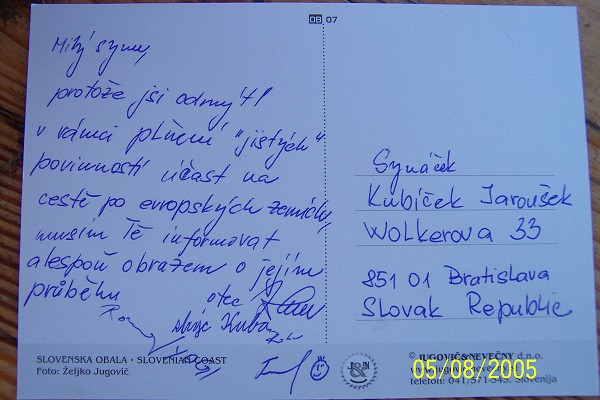 08 07
Milý synu,
protože jsi odmýtl
v rámci plnění "jistých"
povinností účast na
cestě po evropských zemích,
musím Tě informovat
alespoň obrazem o jejím
průběhu
otec
strýc Kuba
Synáček
Kubíček Jaroušek
Wolkerova 33
851 01 Bratislava
Slovak Republic
SLOVENSKA OBALA · SLOVENIAN COAST
Foto: Željko Jugovič
© JUGOVIČ&NEVEČNY d.n.o.
telefon: 041/571-545, Slovenija
05/08/2005